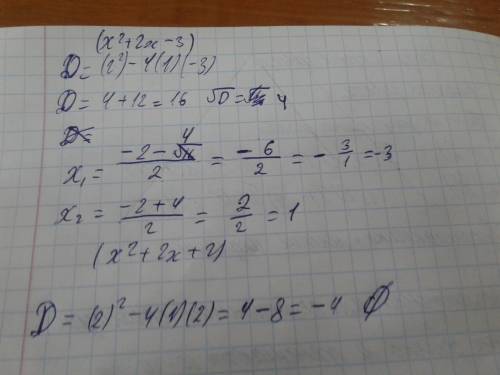 (x²+2x-3)
D=(2²)-4(1)(-3)
D=4+12=16 √D= 4
D=
x₁ = (-2-4)/2 = -6/2 = -3/1 = -3
x₂ = (-2+4)/2 = 2/2 = 1
(x²+2x+2)
D=(2)²-4(1)(2)=4-8=-4 Ø